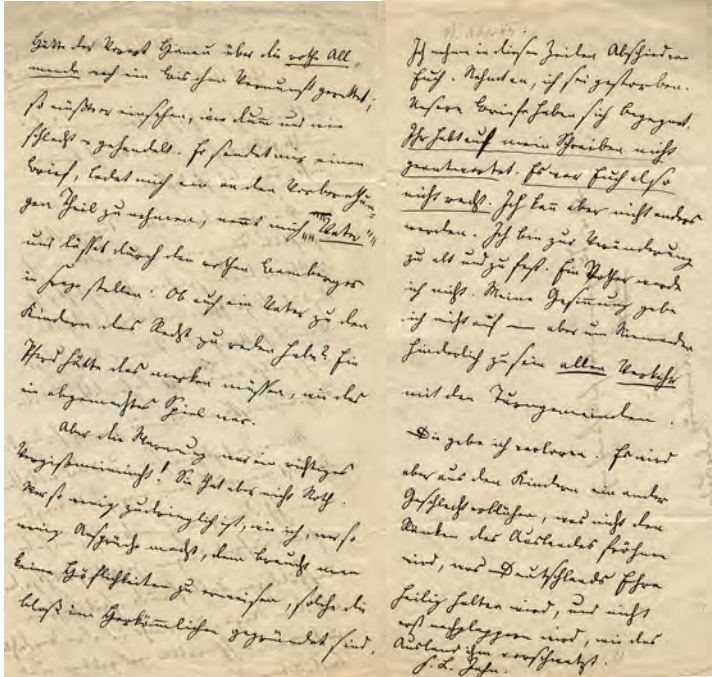 Hätte der Vorort Hanau über die rothe All-
mende noch ein bis chen Vernunft gerettet;
so müßte er einsehen, wie dumm und wie
schlecht er gehandelt. Er sendet mir einen
Brief, ladet mich ein an den Vorberathun-
gen Theil zu nehmen, nennt mich """Vater""
und lässet durch den rothen Bamberger
in Frage stellen: Ob auch ein Vater zu den
Kindern das Recht zu reden habe? Ein
Pferd hätte das merken müssen, wie das
ein abgemachtes Spiel war.
Aber die Warnung war ein richtiges
Vergißmeinnicht! Sie that aber nicht Noth.
Wer so wenig zudringlich ist, wie ich, wer so
wenig Ansprüche macht, dem braucht man
keine Höflichkeiten zu erweisen, solche die
bloß im Herkömmlichen gegründet sind.
Ich nehme in diesen Zeilen Abschied von
Euch. Nehmt an, ich sei gestorben.
Unsere Briefe haben sich begegnet.
Ihr habt auf mein Schreiben nicht
geantwortet. Es war Euch also
nicht recht. Ich kann aber nicht anders
werden. Ich bin zur Veränderung
zu alt und zu fest. Ein Rother werde
ich nicht. Meine Gesinnung gebe
ich nicht auf — aber um Niemanden
hinderlich zu sein allen Verkehr
mit den Turngemeinden.
Die gebe ich verloren. Es wird
aber aus den Kindern ein ander
Geschlecht erblühen, was nicht den
Ränken des Auslandes fröhnen
wird, was Deutschlands Ehre
heilig halten wird, und nicht
erst nachplappern wird, wie das
Ausland ihm vorschwatzt.
F. L. Jahn.